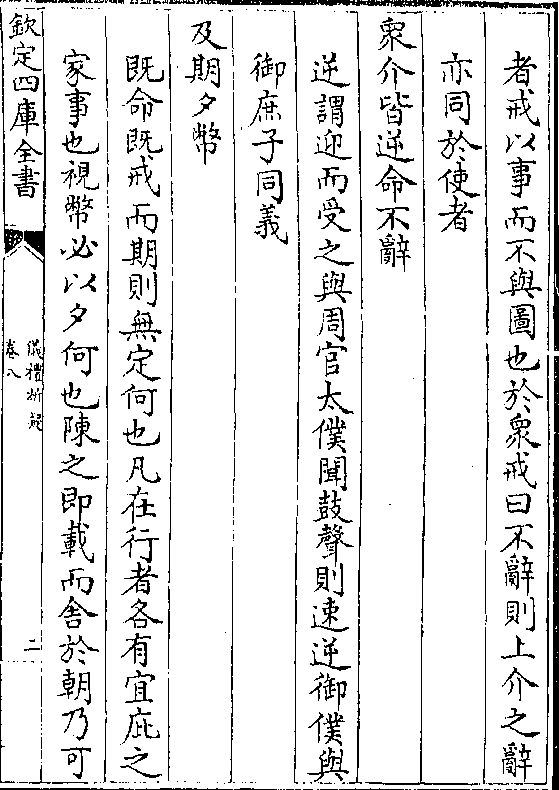 者戒以事而不與圖也於衆戒曰不辭則上介之辭
亦同於使者
衆介皆逆命不辭
逆謂迎而受之與周官太僕聞鼓聲則速逆御僕與
御庶子同義
及期夕幣
既命既戒而期則無定何也凡在行者各有宜庇之
家事也視幣必以夕何也陳之即載而舍於朝乃可
欽定四庫全書
儀禮析疑
卷八
二